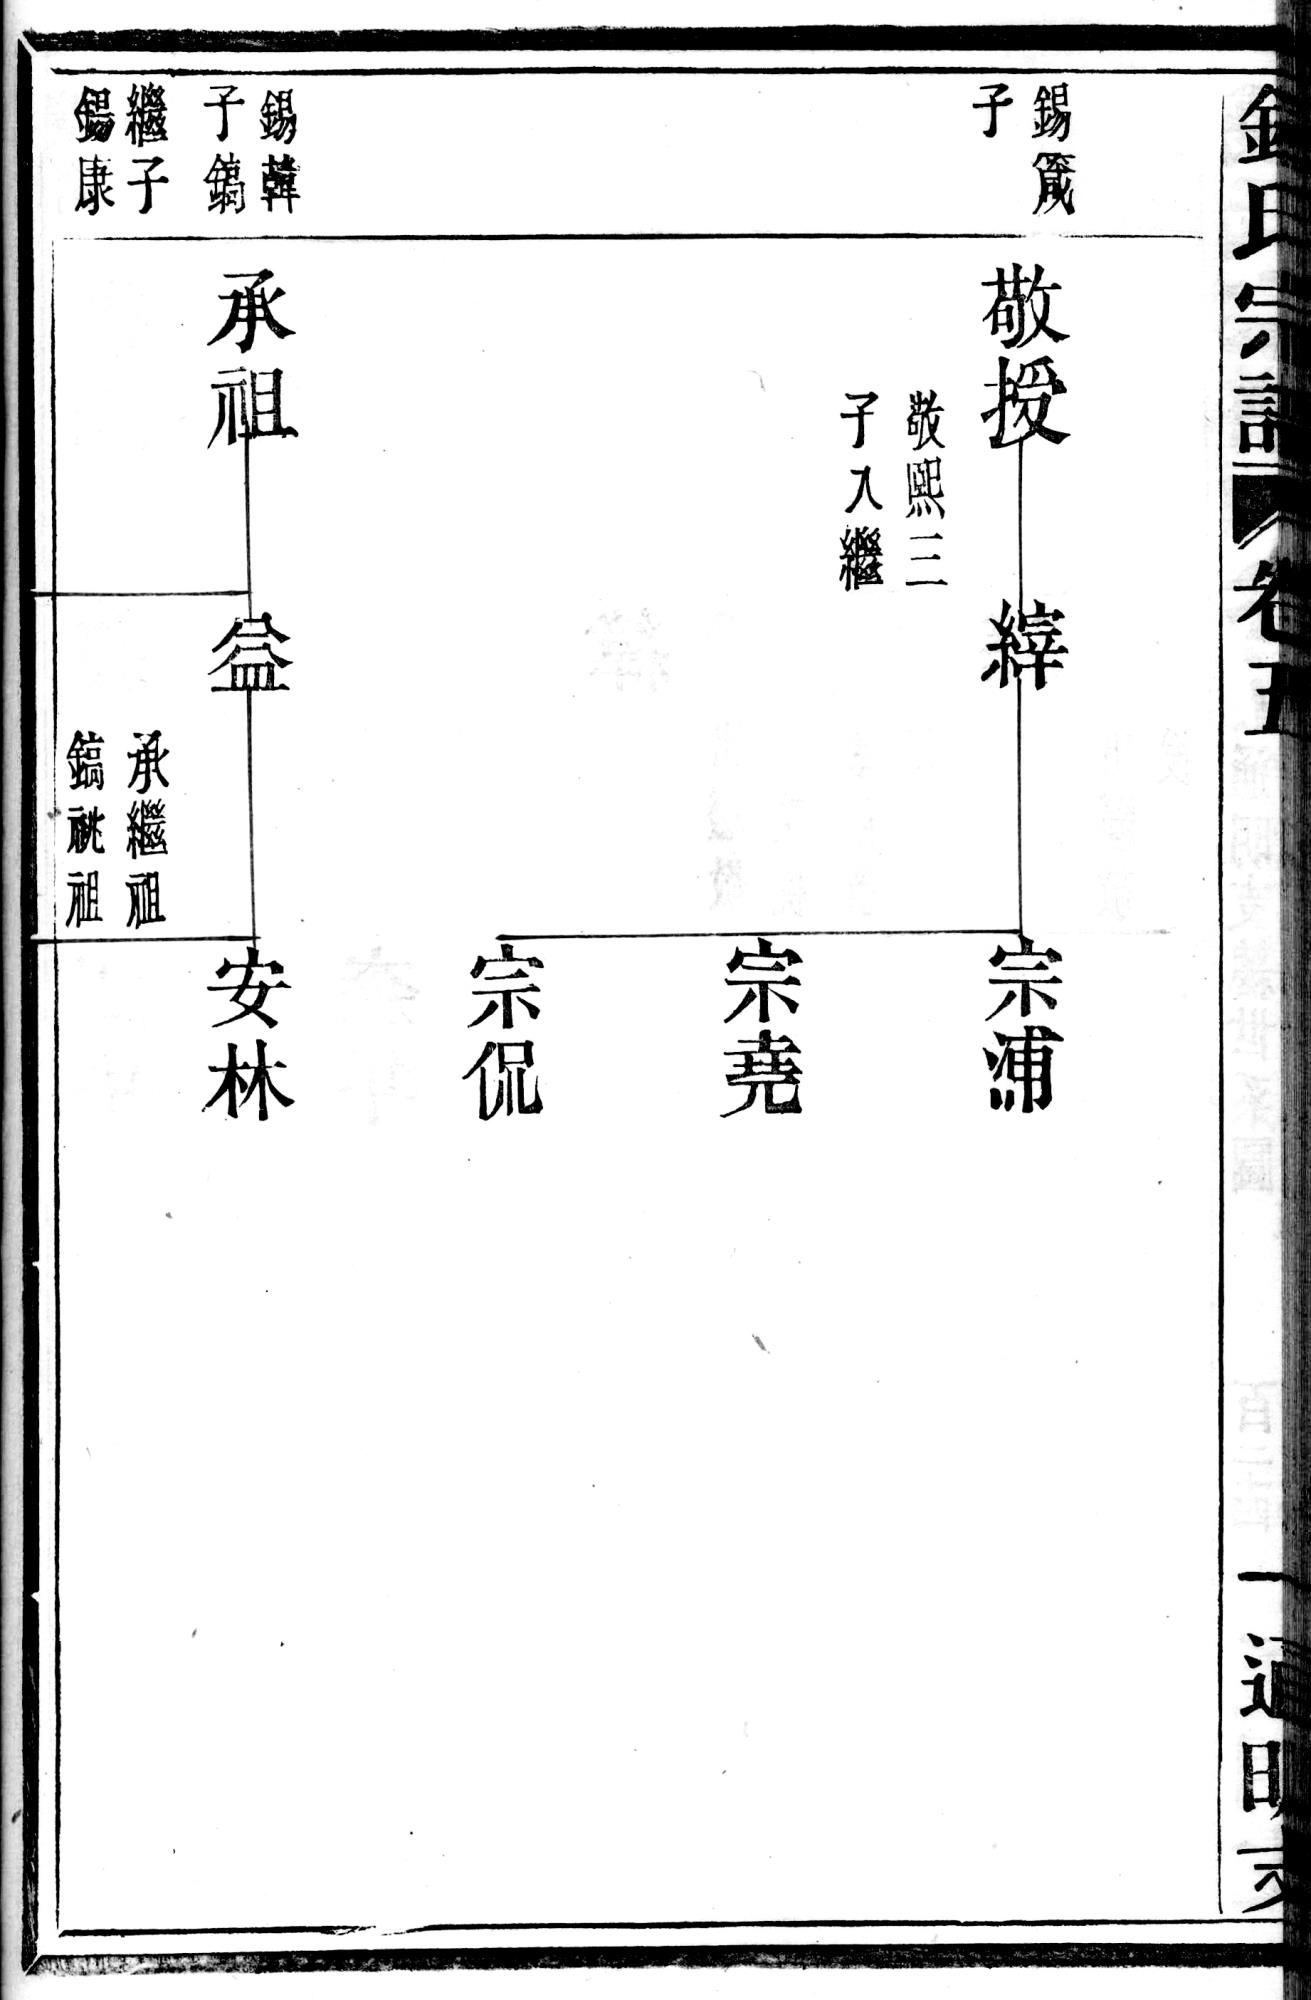 氏宗譜
卷五
一
通明支
錫箴
子
敬授
敬熙三
子入繼
縡
宗浦
宗堯
宗侃
錫韓
子鎬
繼子
錫康
承祖
益
承繼祖
鎬祧祖
安林